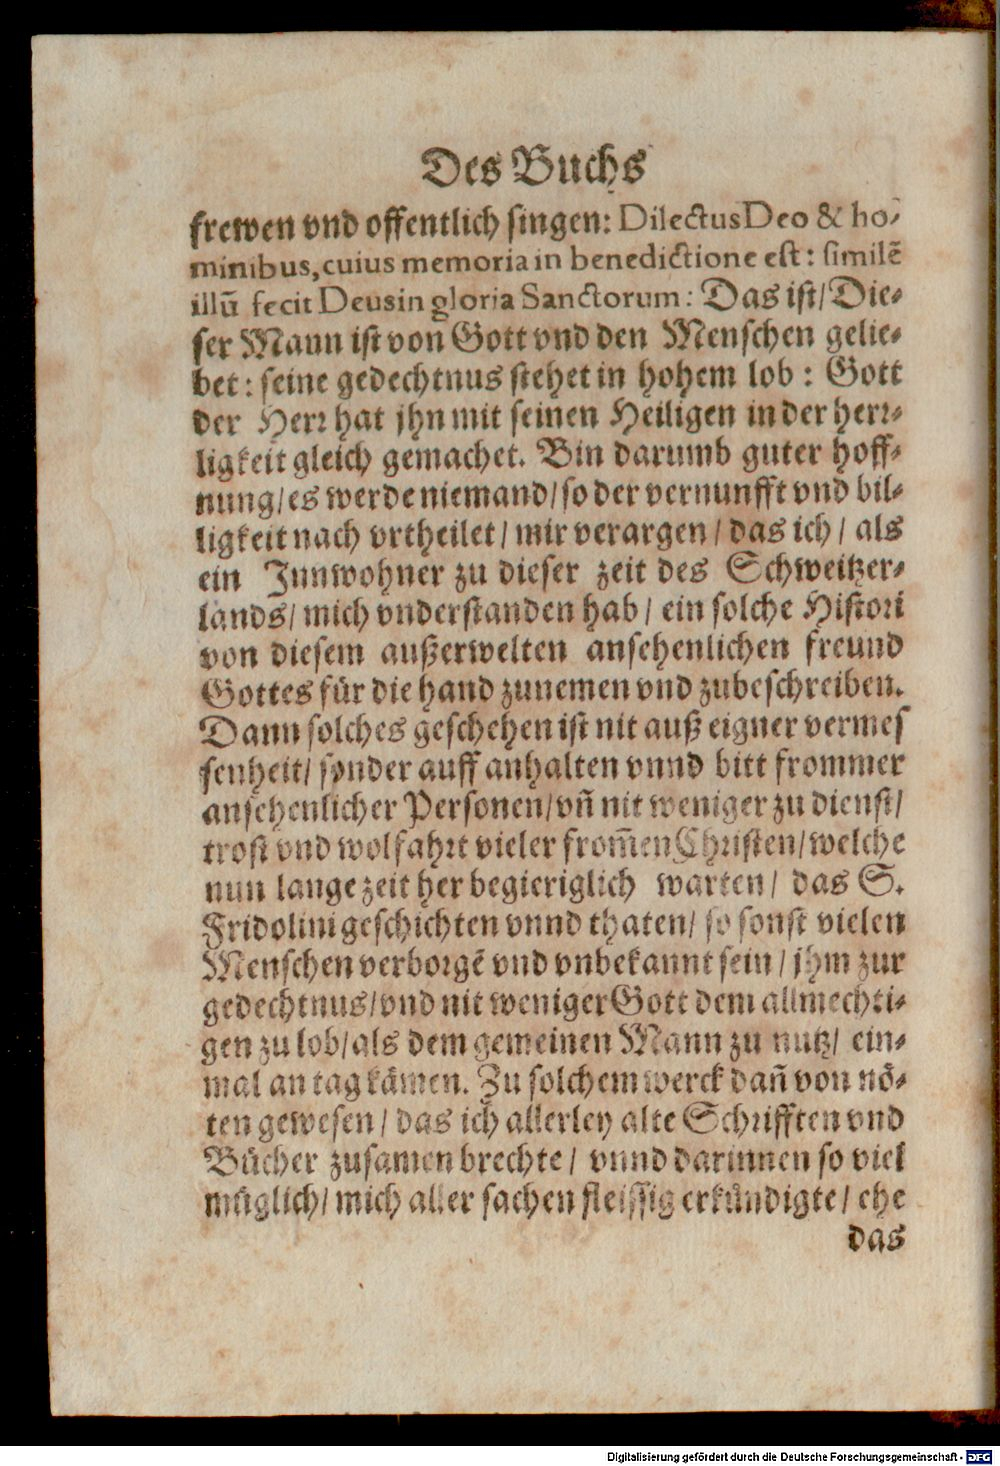 Des Buchs
frewen vnd offentlich singen: Dilectus Deo & ho-
minibus, cuius memoria in benedictione est: similē
illū fecit Deus in gloria Sanctorum: Das ist/ Die-
ser Mann ist von Gott vnd den Menschen gelie-
bet: seine gedechtnus stehet in hohem lob: Gott
der Herr hat jhn mit seinen Heiligen in der herr-
ligkeit gleich gemachet. Bin darumb guter hoff-
nung/ es werde niemand/ so der vernunfft vnd bil-
ligkeit nach vrtheilet/ mir verargen/ das ich/ als
ein Innwohner zu dieser zeit des Schweitzer-
lands/ mich vnderstanden hab/ ein solche Histori
von diesem außerwelten ansehenlichen freund
Gottes für die hand zunemen vnd zubeschreiben.
Dann solches geschehen ist nit auß eigner vermes
senheit/ sonder auff anhalten vnnd bitt frommer
ansehenlicher Personen/ vñ nit weniger zu dienst/
trost vnd wolfahrt vieler from̃en Christen/ welche
nun lange zeit her begieriglich warten/ das S.
Fridolini geschichten vnnd thaten/ so sonst vielen
Menschen verborgē vnd vnbekannt sein/ jhm zur
gedechtnus/ vnd nit weniger Gott dem allmechti-
gen zu lob/ als dem gemeinen Mann zu nutz/ ein-
mal an tag kämen. Zu solchem werck dañ von nö-
ten gewesen/ das ich allerley alte Schrifften vnd
Bücher zusamen brechte/ vnnd darinnen so viel
müglich/ mich aller sachen fleissig erkündigte/ ehe
das
Digitalisierung gefördert durch die Deutsche Forschungsgemeinschaft - DFG